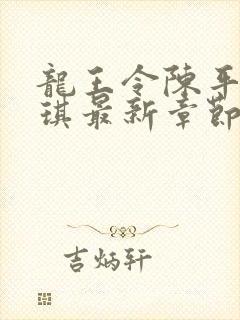 龍王令陳平
琪最新章節
吉炳轩